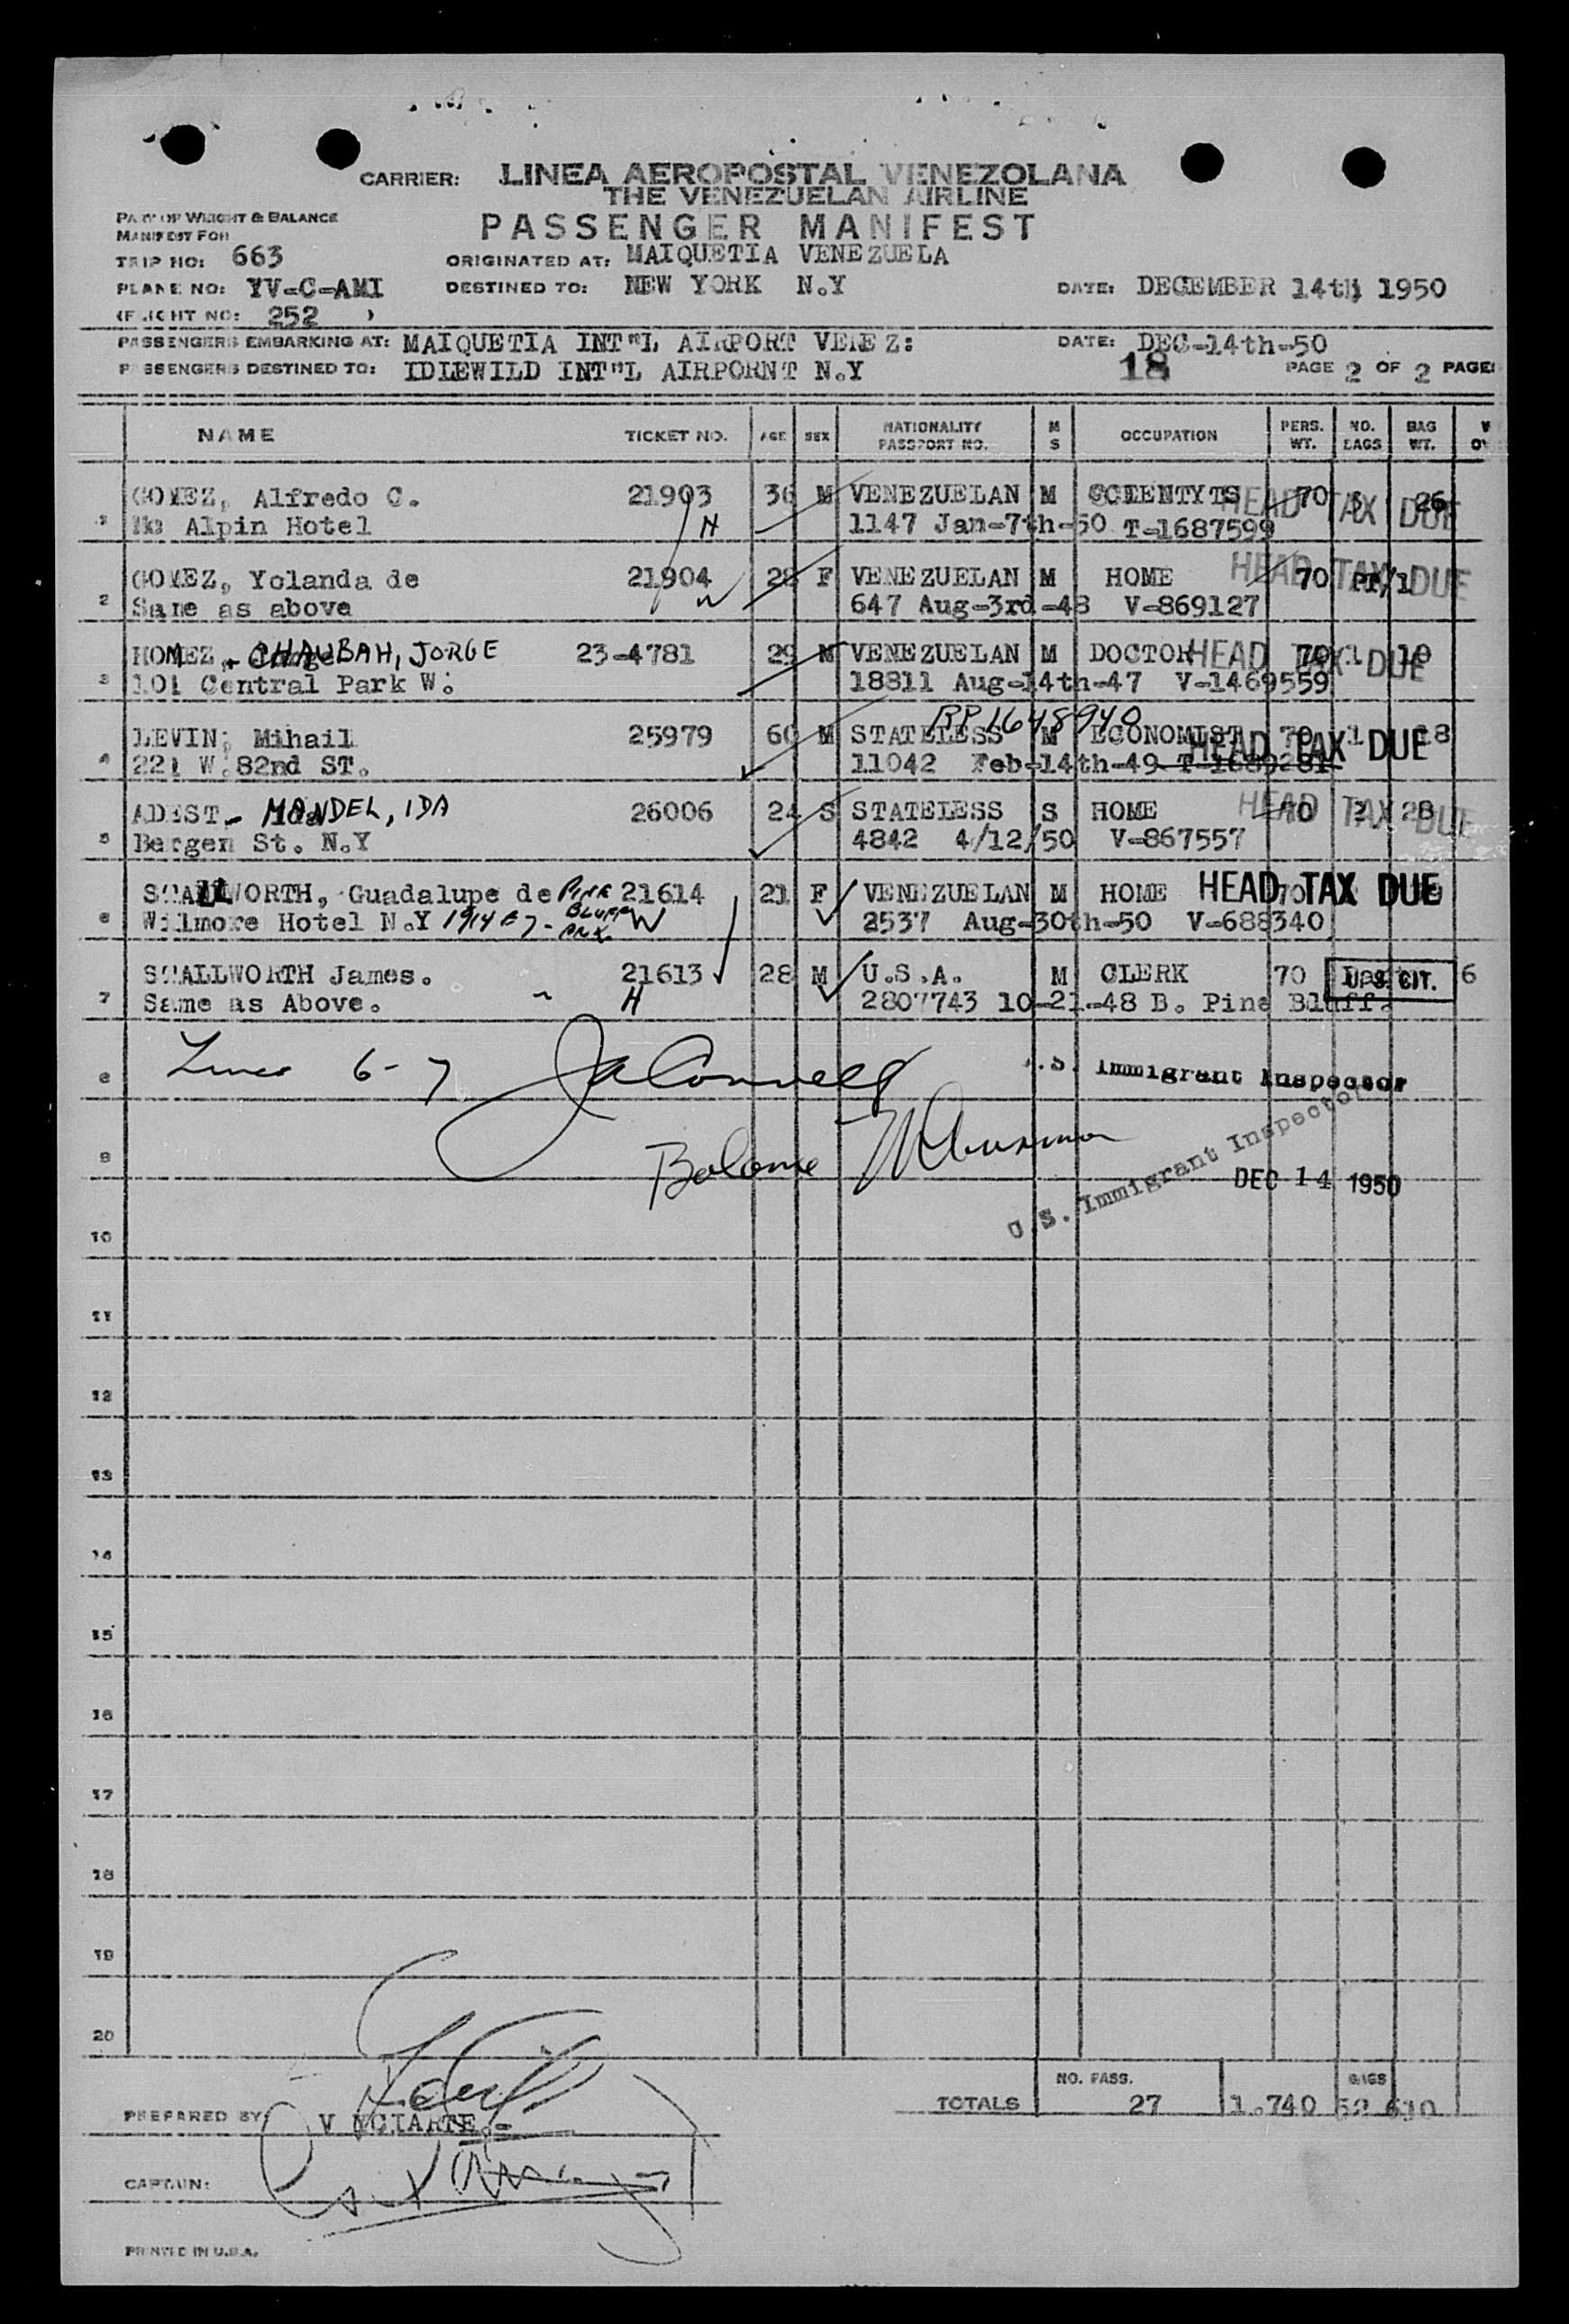 CARRIER: LINEA AEROPOSTAL VENEZOLANA
THE VENEZUELAN AIRLINE
PART OF WEIGHT & BALANCE
MANIFEST FOR
PASSENGER MANIFEST
TRIP NO: 663
ORIGINATED AT: MAIQUETIA VENEZUELA
PLANE NO: YV-C-AMI
DESTINED TO: NEW YORK N.Y
DATE: DECEMBER 14th 1950
(FLIGHT NO: 252 )
PASSENGERS EMBARKING AT: MAIQUETIA INT"L AIRPORT VENEZ:
DATE: DEC-14th-50
PASSENGERS DESTINED TO: IDLEWILD INT"L AIRPORNT N.Y
18
PAGE 2 OF 2 PAGES
NAME TICKET NO. AGE SEX NATIONALITY PASSPORT NO. M S OCCUPATION PERS. WT. NO. BAGS BAG WT.
GOMEZ, Alfredo C. 21903 36 M VENEZUELAN M 70 26 HEAD TAX DUE
Alpin Hotel H 1147 Jan-7th-50 T-1687599
2 GOMEZ, Yolanda de 21904 28 F VENEZUELAN M HOME 70 HEAD TAX DUE
Same as above W 647 Aug-3rd-48 V-869127
CHAUBAH, JORGE 23-4781 29 M VENEZUELAN M DOCTOR 70 1 HEAD TAX DUE
3 101 Central Park W. 18811 Aug-14th-47 V-1469559
RP 1648940
LEVIN, Mihail 25979 60 M STATELESS M ECONOMIST 70 1 18 HEAD TAX DUE
4 221 W.82nd ST. 11042 Feb-14th-49 T-1689281
ADEST - MANDEL, IDA 26006 24 S STATELESS S HOME 70 2 28 HEAD TAX DUE
5 Bergen St. N.Y 4842 4/12/50 V-867557
STALLWORTH, Guadalupe de PINE 21614 21 F VENEZUELAN M HOME 70 HEAD TAX DUE
6 Wilmore Hotel N.Y 1914 E 7- BLUFF ARK. W 2537 Aug-30th-50 V-688340
STALLWORTH James. 21613 28 M U.S.A. M CLERK 70 U.S. CIT. 6
7 Same as Above. H 2807743 10-21-48 B. Pine Bluff.
8 Lines 6-7 U.S. Immigrant Inspector
9
U.S. Immigrant Inspector
DEC 14 1950
10
11
12
13
14
15
16
17
18
19
20
NO. PASS. BAGS
TOTALS 27 1.740 52 610
PREPARED BY
CAPTAIN:
PRINTED IN U.S.A.